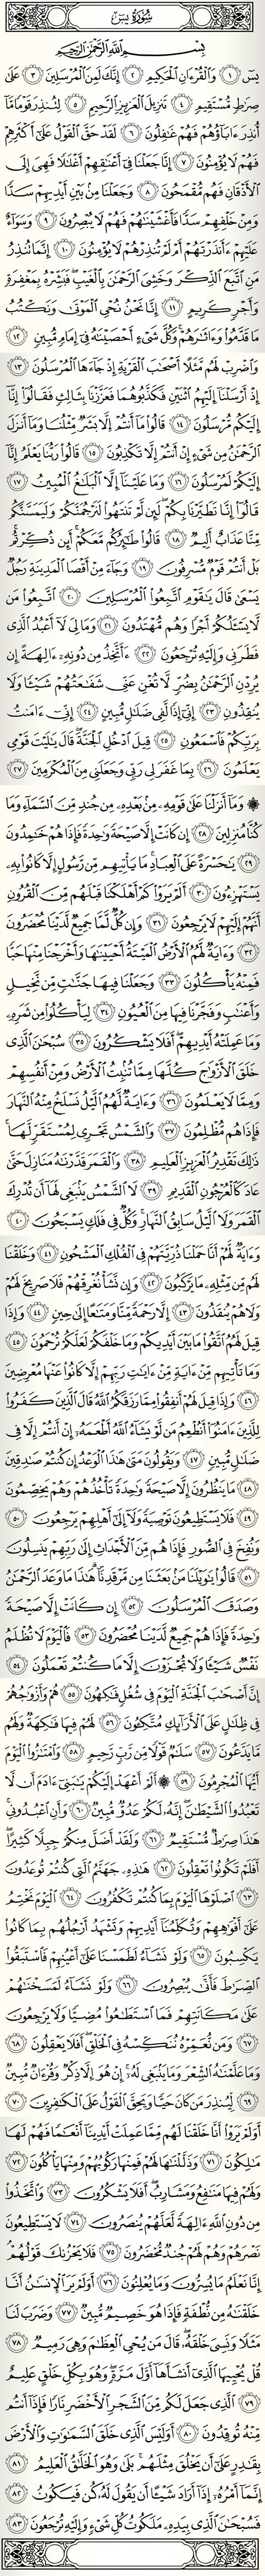 سُورَةُ يسٓ
بِسْمِ ٱللَّهِ ٱلرَّحْمَٰنِ ٱلرَّحِيمِ
يسٓ ١ وَٱلْقُرْءَانِ ٱلْحَكِيمِ ٢ إِنَّكَ لَمِنَ ٱلْمُرْسَلِينَ ٣ عَلَىٰ
صِرَٰطٍ مُّسْتَقِيمٍ ٤ تَنزِيلَ ٱلْعَزِيزِ ٱلرَّحِيمِ ٥ لِتُنذِرَ قَوْمًا مَّآ
أُنذِرَ ءَابَآؤُهُمْ فَهُمْ غَٰفِلُونَ ٦ لَقَدْ حَقَّ ٱلْقَوْلُ عَلَىٰٓ أَكْثَرِهِمْ
فَهُمْ لَا يُؤْمِنُونَ ٧ إِنَّا جَعَلْنَا فِىٓ أَعْنَٰقِهِمْ أَغْلَٰلًا فَهِىَ إِلَى
ٱلْأَذْقَانِ فَهُم مُّقْمَحُونَ ٨ وَجَعَلْنَا مِنۢ بَيْنِ أَيْدِيهِمْ سَدًّا
وَمِنْ خَلْفِهِمْ سَدًّا فَأَغْشَيْنَٰهُمْ فَهُمْ لَا يُبْصِرُونَ ٩ وَسَوَآءٌ
عَلَيْهِمْ ءَأَنذَرْتَهُمْ أَمْ لَمْ تُنذِرْهُمْ لَا يُؤْمِنُونَ ١٠ إِنَّمَا تُنذِرُ
مَنِ ٱتَّبَعَ ٱلذِّكْرَ وَخَشِىَ ٱلرَّحْمَٰنَ بِٱلْغَيْبِ ۖ فَبَشِّرْهُ بِمَغْفِرَةٍ
وَأَجْرٍ كَرِيمٍ ١١ إِنَّا نَحْنُ نُحْىِ ٱلْمَوْتَىٰ وَنَكْتُبُ
مَا قَدَّمُوا۟ وَءَاثَٰرَهُمْ ۚ وَكُلَّ شَىْءٍ أَحْصَيْنَٰهُ فِىٓ إِمَامٍ مُّبِينٍ ١٢
وَٱضْرِبْ لَهُم مَّثَلًا أَصْحَٰبَ ٱلْقَرْيَةِ إِذْ جَآءَهَا ٱلْمُرْسَلُونَ ١٣
إِذْ أَرْسَلْنَآ إِلَيْهِمُ ٱثْنَيْنِ فَكَذَّبُوهُمَا فَعَزَّزْنَا بِثَالِثٍ فَقَالُوٓا۟ إِنَّآ
إِلَيْكُم مُّرْسَلُونَ ١٤ قَالُوا۟ مَآ أَنتُمْ إِلَّا بَشَرٌ مِّثْلُنَا وَمَآ أَنزَلَ
ٱلرَّحْمَٰنُ مِن شَىْءٍ إِنْ أَنتُمْ إِلَّا تَكْذِبُونَ ١٥ قَالُوا۟ رَبُّنَا يَعْلَمُ إِنَّآ
إِلَيْكُمْ لَمُرْسَلُونَ ١٦ وَمَا عَلَيْنَآ إِلَّا ٱلْبَلَٰغُ ٱلْمُبِينُ ١٧
قَالُوٓا۟ إِنَّا تَطَيَّرْنَا بِكُمْ ۖ لَئِن لَّمْ تَنتَهُوا۟ لَنَرْجُمَنَّكُمْ وَلَيَمَسَّنَّكُم
مِّنَّا عَذَابٌ أَلِيمٌ ١٨ قَالُوا۟ طَٰٓئِرُكُم مَّعَكُمْ ۚ أَئِن ذُكِّرْتُم ۚ
بَلْ أَنتُمْ قَوْمٌ مُّسْرِفُونَ ١٩ وَجَآءَ مِنْ أَقْصَا ٱلْمَدِينَةِ رَجُلٌ
يَسْعَىٰ قَالَ يَٰقَوْمِ ٱتَّبِعُوا۟ ٱلْمُرْسَلِينَ ٢٠ ٱتَّبِعُوا۟ مَن
لَّا يَسْـَٔلُكُمْ أَجْرًا وَهُم مُّهْتَدُونَ ٢١ وَمَا لِىَ لَآ أَعْبُدُ ٱلَّذِى
فَطَرَنِى وَإِلَيْهِ تُرْجَعُونَ ٢٢ ءَأَتَّخِذُ مِن دُونِهِۦٓ ءَالِهَةً إِن
يُرِدْنِ ٱلرَّحْمَٰنُ بِضُرٍّ لَّا تُغْنِ عَنِّى شَفَٰعَتُهُمْ شَيْـًٔا وَلَا
يُنقِذُونِ ٢٣ إِنِّىٓ إِذًا لَّفِى ضَلَٰلٍ مُّبِينٍ ٢٤ إِنِّىٓ ءَامَنتُ
بِرَبِّكُمْ فَٱسْمَعُونِ ٢٥ قِيلَ ٱدْخُلِ ٱلْجَنَّةَ ۖ قَالَ يَٰلَيْتَ قَوْمِى
يَعْلَمُونَ ٢٦ بِمَا غَفَرَ لِى رَبِّى وَجَعَلَنِى مِنَ ٱلْمُكْرَمِينَ ٢٧
۞ وَمَآ أَنزَلْنَا عَلَىٰ قَوْمِهِۦ مِنۢ بَعْدِهِۦ مِن جُندٍ مِّنَ ٱلسَّمَآءِ وَمَا
كُنَّا مُنزِلِينَ ٢٨ إِن كَانَتْ إِلَّا صَيْحَةً وَٰحِدَةً فَإِذَا هُمْ خَٰمِدُونَ
٢٩ يَٰحَسْرَةً عَلَى ٱلْعِبَادِ ۚ مَا يَأْتِيهِم مِّن رَّسُولٍ إِلَّا كَانُوا۟ بِهِۦ
يَسْتَهْزِءُونَ ٣٠ أَلَمْ يَرَوْا۟ كَمْ أَهْلَكْنَا قَبْلَهُم مِّنَ ٱلْقُرُونِ
أَنَّهُمْ إِلَيْهِمْ لَا يَرْجِعُونَ ٣١ وَإِن كُلٌّ لَّمَّا جَمِيعٌ لَّدَيْنَا مُحْضَرُونَ
٣٢ وَءَايَةٌ لَّهُمُ ٱلْأَرْضُ ٱلْمَيْتَةُ أَحْيَيْنَٰهَا وَأَخْرَجْنَا مِنْهَا حَبًّا
فَمِنْهُ يَأْكُلُونَ ٣٣ وَجَعَلْنَا فِيهَا جَنَّٰتٍ مِّن نَّخِيلٍ
وَأَعْنَٰبٍ وَفَجَّرْنَا فِيهَا مِنَ ٱلْعُيُونِ ٣٤ لِيَأْكُلُوا۟ مِن ثَمَرِهِۦ
وَمَا عَمِلَتْهُ أَيْدِيهِمْ ۖ أَفَلَا يَشْكُرُونَ ٣٥ سُبْحَٰنَ ٱلَّذِى
خَلَقَ ٱلْأَزْوَٰجَ كُلَّهَا مِمَّا تُنۢبِتُ ٱلْأَرْضُ وَمِنْ أَنفُسِهِمْ
وَمِمَّا لَا يَعْلَمُونَ ٣٦ وَءَايَةٌ لَّهُمُ ٱلَّيْلُ نَسْلَخُ مِنْهُ ٱلنَّهَارَ
فَإِذَا هُم مُّظْلِمُونَ ٣٧ وَٱلشَّمْسُ تَجْرِى لِمُسْتَقَرٍّ لَّهَا ۚ
ذَٰلِكَ تَقْدِيرُ ٱلْعَزِيزِ ٱلْعَلِيمِ ٣٨ وَٱلْقَمَرَ قَدَّرْنَٰهُ مَنَازِلَ حَتَّىٰ
عَادَ كَٱلْعُرْجُونِ ٱلْقَدِيمِ ٣٩ لَا ٱلشَّمْسُ يَنۢبَغِى لَهَآ أَن تُدْرِكَ
ٱلْقَمَرَ وَلَا ٱلَّيْلُ سَابِقُ ٱلنَّهَارِ ۚ وَكُلٌّ فِى فَلَكٍ يَسْبَحُونَ ٤٠
وَءَايَةٌ لَّهُمْ أَنَّا حَمَلْنَا ذُرِّيَّتَهُمْ فِى ٱلْفُلْكِ ٱلْمَشْحُونِ ٤١ وَخَلَقْنَا
لَهُم مِّن مِّثْلِهِۦ مَا يَرْكَبُونَ ٤٢ وَإِن نَّشَأْ نُغْرِقْهُمْ فَلَا صَرِيخَ لَهُمْ
وَلَا هُمْ يُنقَذُونَ ٤٣ إِلَّا رَحْمَةً مِّنَّا وَمَتَٰعًا إِلَىٰ حِينٍ ٤٤ وَإِذَا
قِيلَ لَهُمُ ٱتَّقُوا۟ مَا بَيْنَ أَيْدِيكُمْ وَمَا خَلْفَكُمْ لَعَلَّكُمْ تُرْحَمُونَ ٤٥
وَمَا تَأْتِيهِم مِّنْ ءَايَةٍ مِّنْ ءَايَٰتِ رَبِّهِمْ إِلَّا كَانُوا۟ عَنْهَا مُعْرِضِينَ
٤٦ وَإِذَا قِيلَ لَهُمْ أَنفِقُوا۟ مِمَّا رَزَقَكُمُ ٱللَّهُ قَالَ ٱلَّذِينَ كَفَرُوا۟
لِلَّذِينَ ءَامَنُوٓا۟ أَنُطْعِمُ مَن لَّوْ يَشَآءُ ٱللَّهُ أَطْعَمَهُۥٓ إِنْ أَنتُمْ إِلَّا فِى
ضَلَٰلٍ مُّبِينٍ ٤٧ وَيَقُولُونَ مَتَىٰ هَٰذَا ٱلْوَعْدُ إِن كُنتُمْ صَٰدِقِينَ
٤٨ مَا يَنظُرُونَ إِلَّا صَيْحَةً وَٰحِدَةً تَأْخُذُهُمْ وَهُمْ يَخِصِّمُونَ
٤٩ فَلَا يَسْتَطِيعُونَ تَوْصِيَةً وَلَآ إِلَىٰٓ أَهْلِهِمْ يَرْجِعُونَ ٥٠
وَنُفِخَ فِى ٱلصُّورِ فَإِذَا هُم مِّنَ ٱلْأَجْدَاثِ إِلَىٰ رَبِّهِمْ يَنسِلُونَ
٥١ قَالُوا۟ يَٰوَيْلَنَا مَنۢ بَعَثَنَا مِن مَّرْقَدِنَا ۜ ۗ هَٰذَا مَا وَعَدَ ٱلرَّحْمَٰنُ
وَصَدَقَ ٱلْمُرْسَلُونَ ٥٢ إِن كَانَتْ إِلَّا صَيْحَةً
وَٰحِدَةً فَإِذَا هُمْ جَمِيعٌ لَّدَيْنَا مُحْضَرُونَ ٥٣ فَٱلْيَوْمَ لَا تُظْلَمُ
نَفْسٌ شَيْـًٔا وَلَا تُجْزَوْنَ إِلَّا مَا كُنتُمْ تَعْمَلُونَ ٥٤
إِنَّ أَصْحَٰبَ ٱلْجَنَّةِ ٱلْيَوْمَ فِى شُغُلٍ فَٰكِهُونَ ٥٥ هُمْ وَأَزْوَٰجُهُمْ
فِى ظِلَٰلٍ عَلَى ٱلْأَرَآئِكِ مُتَّكِـُٔونَ ٥٦ لَهُمْ فِيهَا فَٰكِهَةٌ وَلَهُم
مَّا يَدَّعُونَ ٥٧ سَلَٰمٌ قَوْلًا مِّن رَّبٍّ رَّحِيمٍ ٥٨ وَٱمْتَٰزُوا۟ ٱلْيَوْمَ
أَيُّهَا ٱلْمُجْرِمُونَ ٥٩ ۞ أَلَمْ أَعْهَدْ إِلَيْكُمْ يَٰبَنِىٓ ءَادَمَ أَن لَّا
تَعْبُدُوا۟ ٱلشَّيْطَٰنَ ۖ إِنَّهُۥ لَكُمْ عَدُوٌّ مُّبِينٌ ٦٠ وَأَنِ ٱعْبُدُونِى ۚ
هَٰذَا صِرَٰطٌ مُّسْتَقِيمٌ ٦١ وَلَقَدْ أَضَلَّ مِنكُمْ جِبِلًّا كَثِيرًا ۖ
أَفَلَمْ تَكُونُوا۟ تَعْقِلُونَ ٦٢ هَٰذِهِۦ جَهَنَّمُ ٱلَّتِى كُنتُمْ تُوعَدُونَ
٦٣ ٱصْلَوْهَا ٱلْيَوْمَ بِمَا كُنتُمْ تَكْفُرُونَ ٦٤ ٱلْيَوْمَ نَخْتِمُ
عَلَىٰٓ أَفْوَٰهِهِمْ وَتُكَلِّمُنَآ أَيْدِيهِمْ وَتَشْهَدُ أَرْجُلُهُم بِمَا كَانُوا۟
يَكْسِبُونَ ٦٥ وَلَوْ نَشَآءُ لَطَمَسْنَا عَلَىٰٓ أَعْيُنِهِمْ فَٱسْتَبَقُوا۟
ٱلصِّرَٰطَ فَأَنَّىٰ يُبْصِرُونَ ٦٦ وَلَوْ نَشَآءُ لَمَسَخْنَٰهُمْ
عَلَىٰ مَكَانَتِهِمْ فَمَا ٱسْتَطَٰعُوا۟ مُضِيًّا وَلَا يَرْجِعُونَ
٦٧ وَمَن نُّعَمِّرْهُ نُنَكِّسْهُ فِى ٱلْخَلْقِ ۖ أَفَلَا يَعْقِلُونَ ٦٨
وَمَا عَلَّمْنَٰهُ ٱلشِّعْرَ وَمَا يَنۢبَغِى لَهُۥٓ ۚ إِنْ هُوَ إِلَّا ذِكْرٌ وَقُرْءَانٌ مُّبِينٌ
٦٩ لِّيُنذِرَ مَن كَانَ حَيًّا وَيَحِقَّ ٱلْقَوْلُ عَلَى ٱلْكَٰفِرِينَ ٧٠
أَوَلَمْ يَرَوْا۟ أَنَّا خَلَقْنَا لَهُم مِّمَّا عَمِلَتْ أَيْدِينَآ أَنْعَٰمًا فَهُمْ لَهَا
مَٰلِكُونَ ٧١ وَذَلَّلْنَٰهَا لَهُمْ فَمِنْهَا رَكُوبُهُمْ وَمِنْهَا يَأْكُلُونَ ٧٢
وَلَهُمْ فِيهَا مَنَٰفِعُ وَمَشَارِبُ ۖ أَفَلَا يَشْكُرُونَ ٧٣ وَٱتَّخَذُوا۟
مِن دُونِ ٱللَّهِ ءَالِهَةً لَّعَلَّهُمْ يُنصَرُونَ ٧٤ لَا يَسْتَطِيعُونَ
نَصْرَهُمْ وَهُمْ لَهُمْ جُندٌ مُّحْضَرُونَ ٧٥ فَلَا يَحْزُنكَ قَوْلُهُمْ ۘ
إِنَّا نَعْلَمُ مَا يُسِرُّونَ وَمَا يُعْلِنُونَ ٧٦ أَوَلَمْ يَرَ ٱلْإِنسَٰنُ أَنَّا
خَلَقْنَٰهُ مِن نُّطْفَةٍ فَإِذَا هُوَ خَصِيمٌ مُّبِينٌ ٧٧ وَضَرَبَ لَنَا
مَثَلًا وَنَسِىَ خَلْقَهُۥ ۖ قَالَ مَن يُحْىِ ٱلْعِظَٰمَ وَهِىَ رَمِيمٌ ٧٨
قُلْ يُحْيِيهَا ٱلَّذِىٓ أَنشَأَهَآ أَوَّلَ مَرَّةٍ ۖ وَهُوَ بِكُلِّ خَلْقٍ عَلِيمٌ
٧٩ ٱلَّذِى جَعَلَ لَكُم مِّنَ ٱلشَّجَرِ ٱلْأَخْضَرِ نَارًا فَإِذَآ أَنتُم
مِّنْهُ تُوقِدُونَ ٨٠ أَوَلَيْسَ ٱلَّذِى خَلَقَ ٱلسَّمَٰوَٰتِ وَٱلْأَرْضَ
بِقَٰدِرٍ عَلَىٰٓ أَن يَخْلُقَ مِثْلَهُم ۚ بَلَىٰ وَهُوَ ٱلْخَلَّٰقُ ٱلْعَلِيمُ ٨١
إِنَّمَآ أَمْرُهُۥٓ إِذَآ أَرَادَ شَيْـًٔا أَن يَقُولَ لَهُۥ كُن فَيَكُونُ ٨٢
فَسُبْحَٰنَ ٱلَّذِى بِيَدِهِۦ مَلَكُوتُ كُلِّ شَىْءٍ وَإِلَيْهِ تُرْجَعُونَ ٨٣